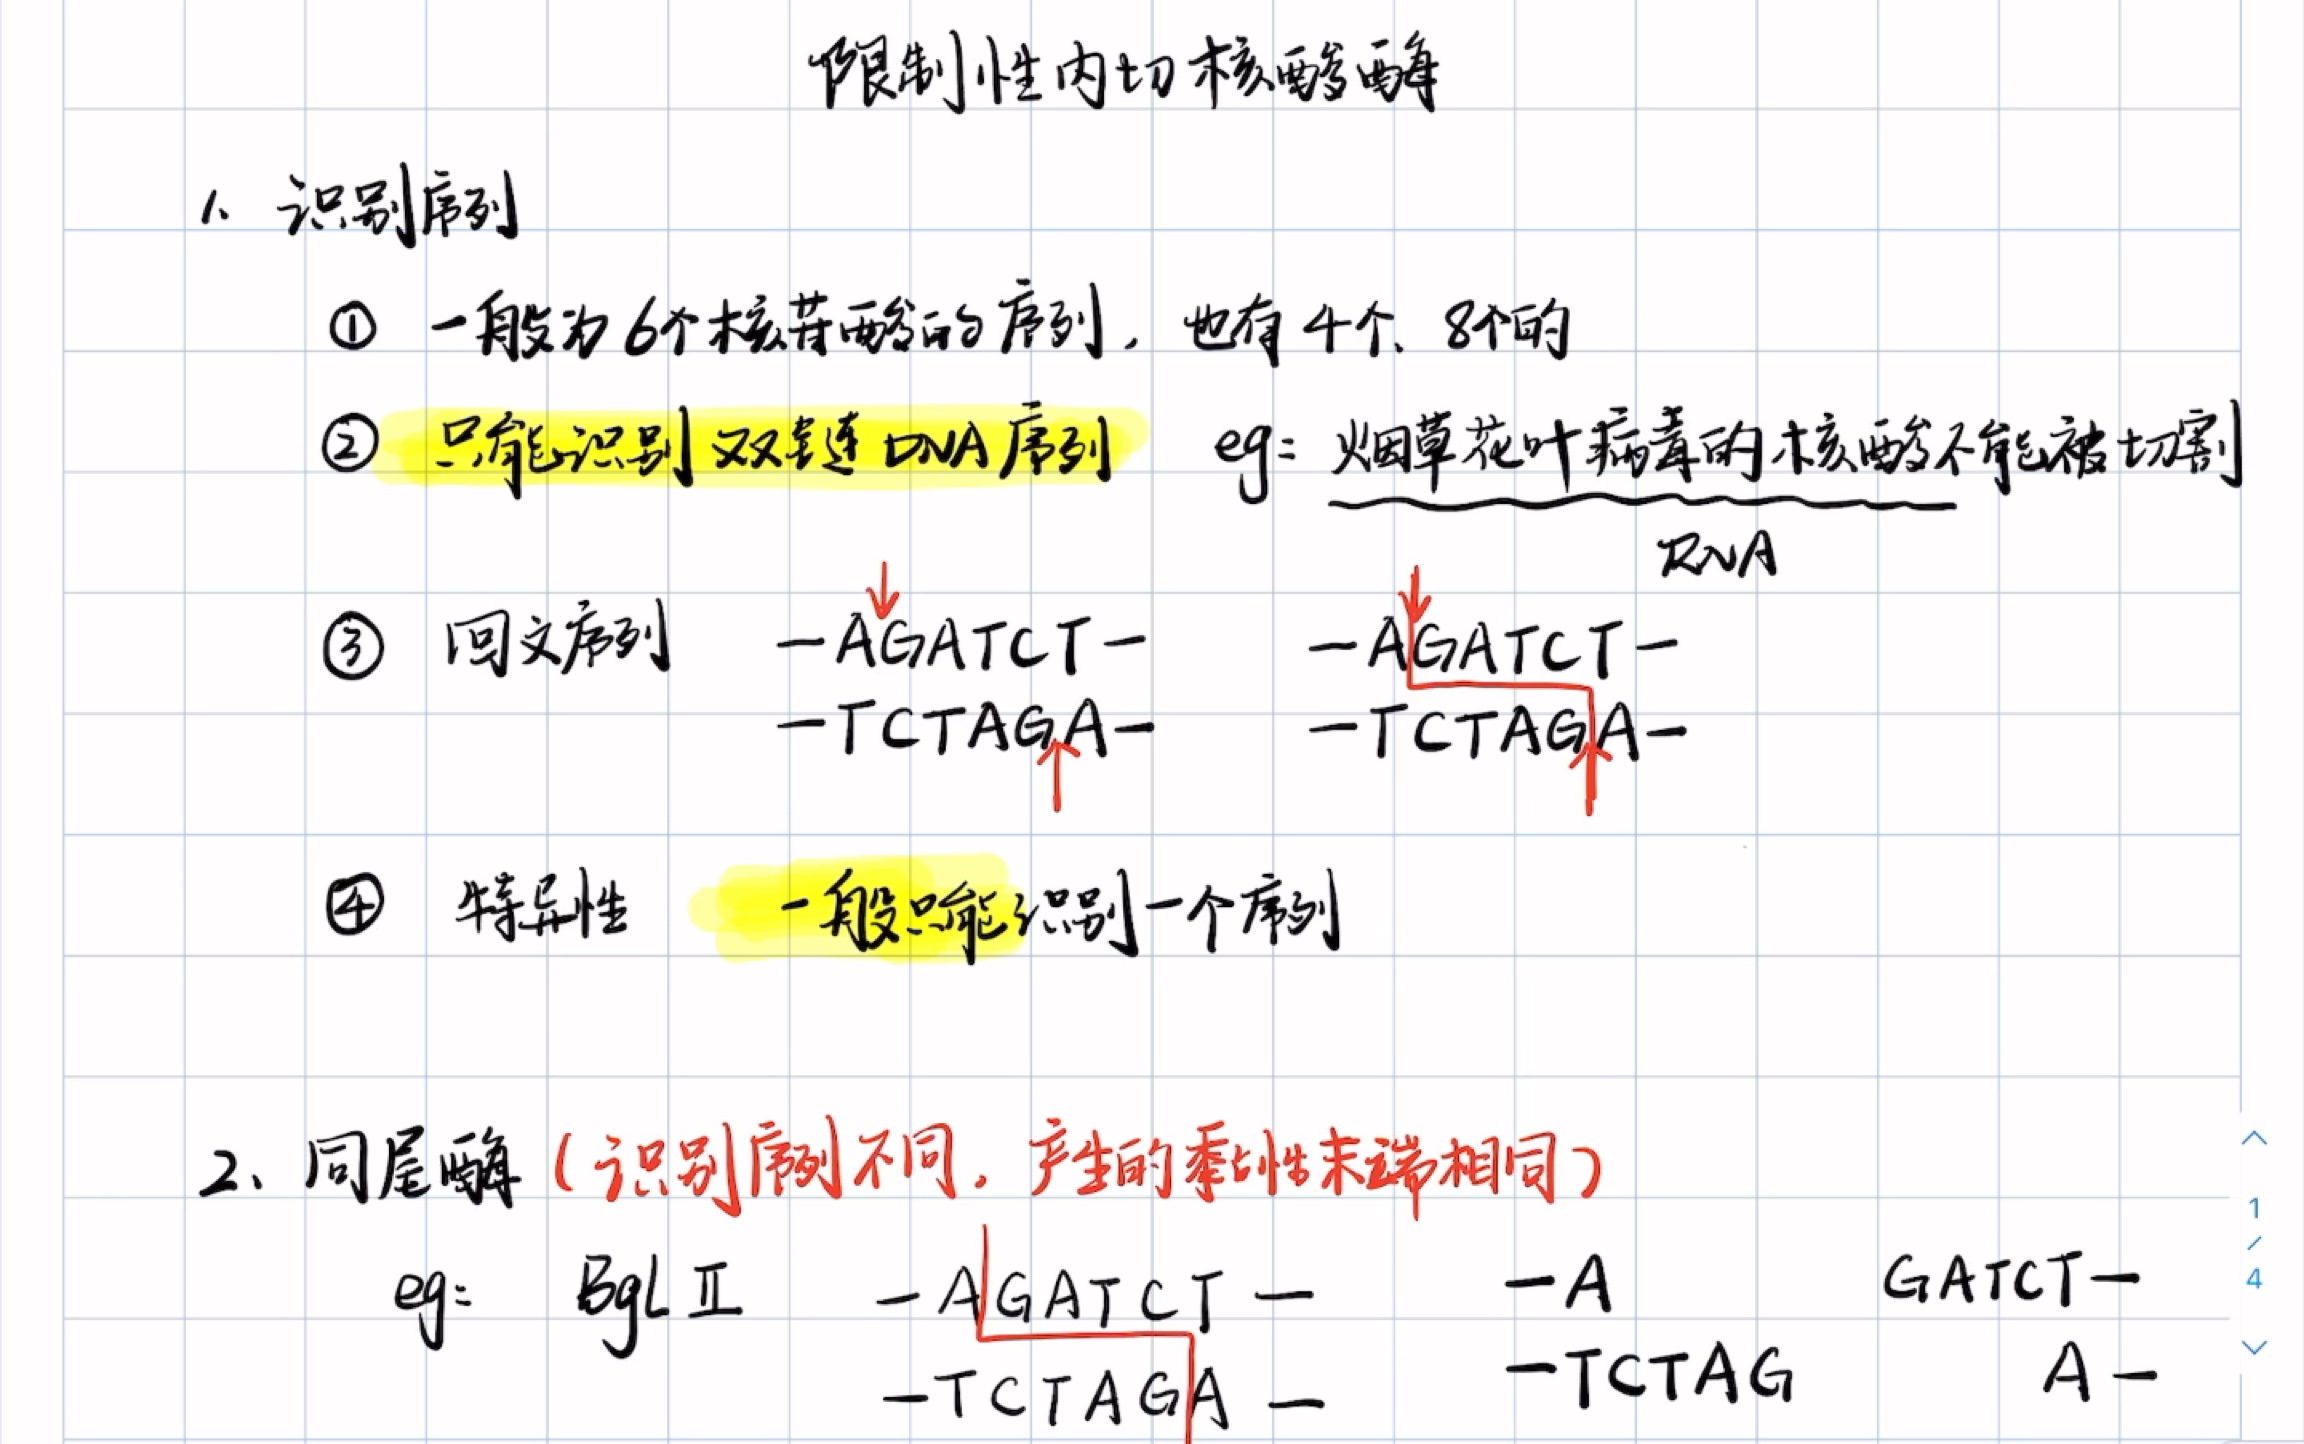 限制性内切核酸酶
1、识别序列
① 一般为6个核苷酸的序列，也有4个、8个的
② 只能识别双链DNA序列 eg: 烟草花叶病毒的核酸不能被切割
RNA
③ 回文序列 -AGATCT- -AGATCT-
-TCTAGA- -TCTAGA-
④ 特异性 一般只能识别一个序列
2、同尾酶（识别序列不同，产生的黏性末端相同）
eg: BgL Ⅱ -AGATCT- -A GATCT-
-TCTAGA- -TCTAG A-
1
/
4